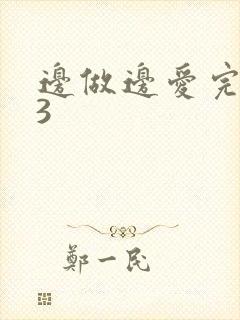 邊做邊愛完
3
鄭一民